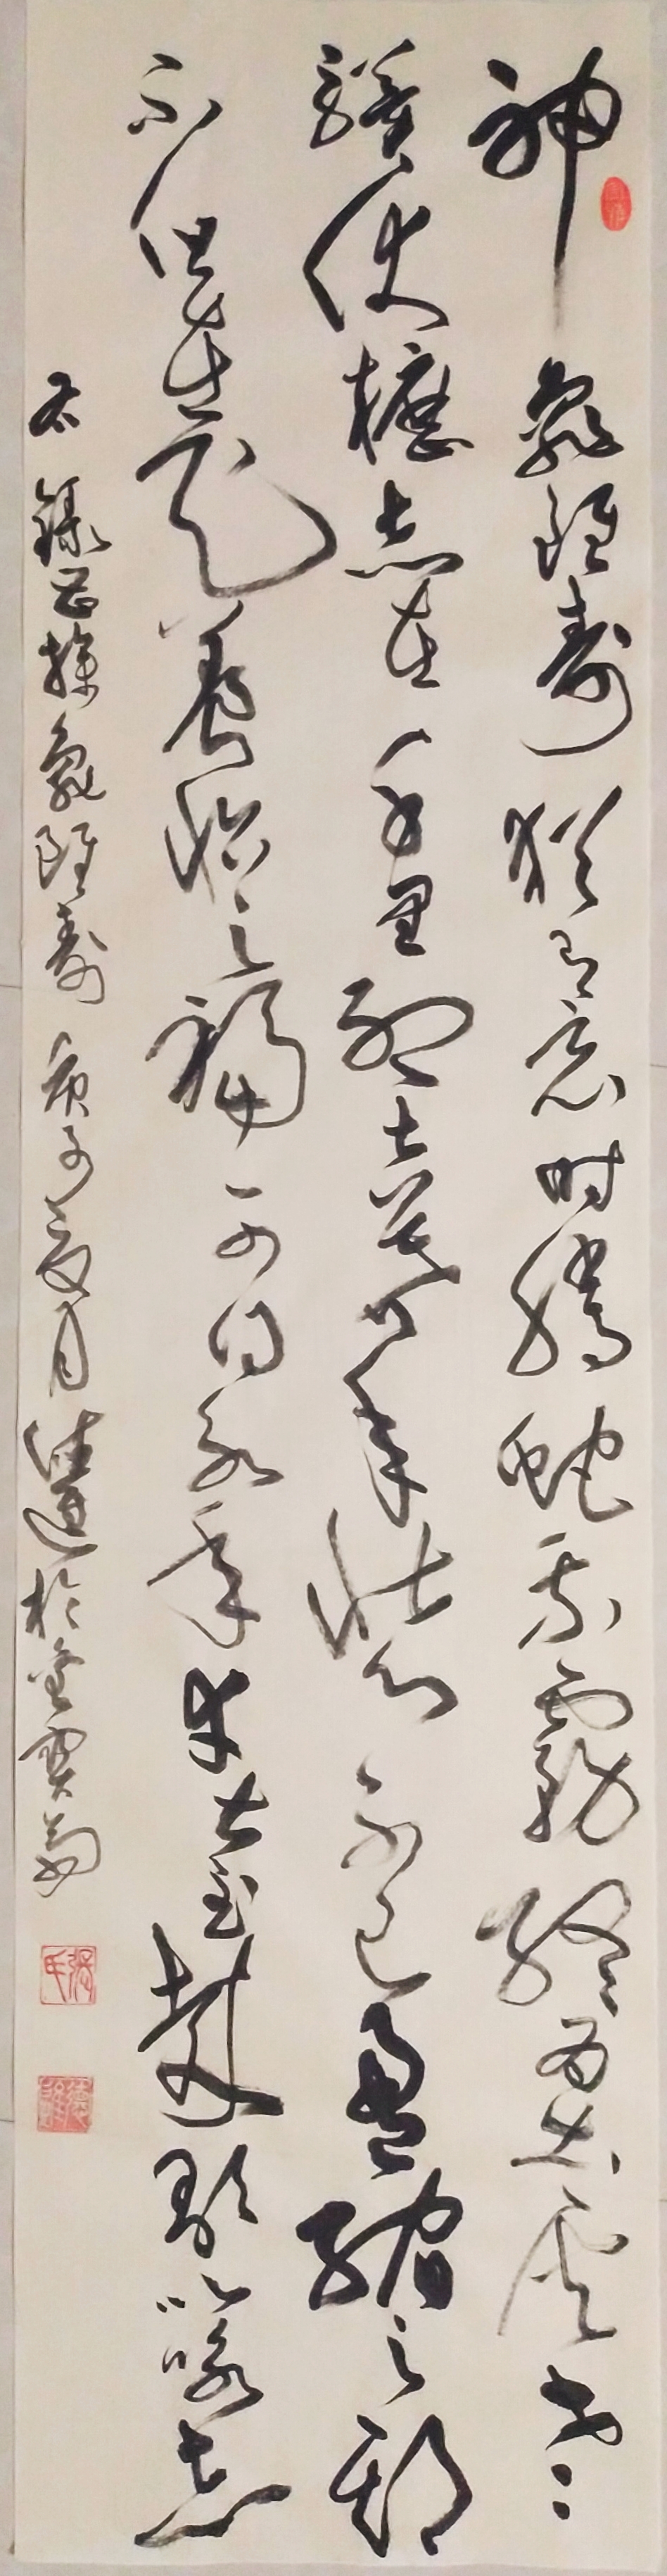 神龜雖壽猶有竟時騰蛇乘霧終為土灰老
驥伏櫪志在千里烈士暮年壯心不已盈縮之期
不但在天養怡之福可得永年幸甚至哉歌以詠志
右錄曹操龜雖壽庚子夏月於
張氏